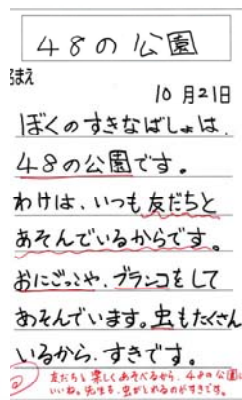 48の公園
まえ
10月21日
ぼくのすきなばしょは、
48の公園です。
わけは、いつも友だちと
あそんでいるからです。
おにごっこや、ブランコをして
あそんでいます。虫もたくさん
いるから、すきです。
友だちと楽しくあそべるから、48の公園は
いいね。先生も、虫がとれるのがすきです。